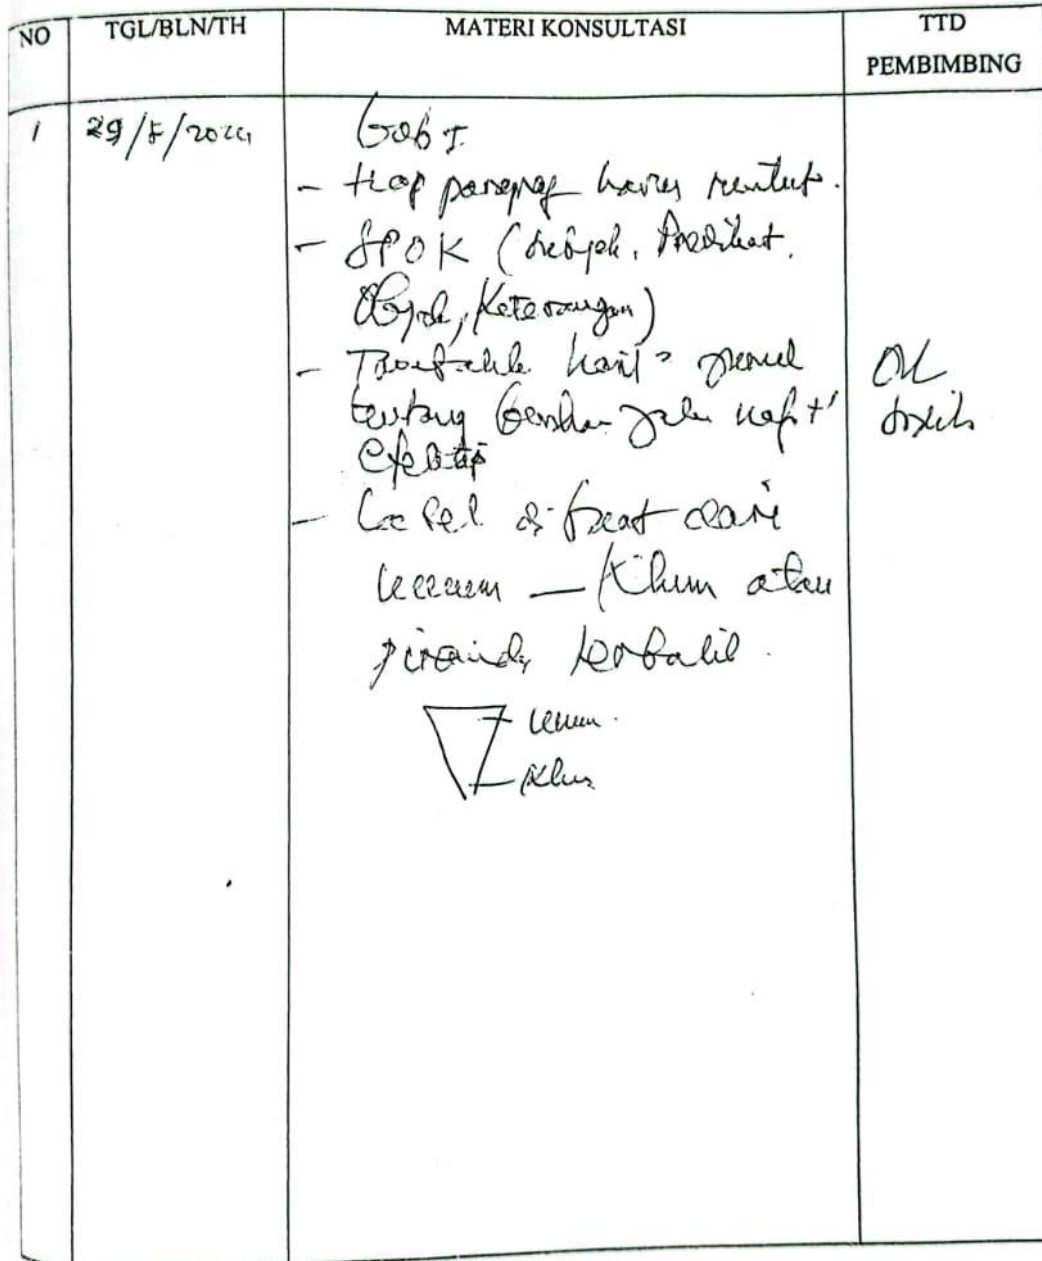 NO TGL/BLN/TH MATERI KONSULTASI TTD
PEMBIMBING
1 29/5/2024 Bab I
- tiap paragraf harus runtut.
- SPOK (Subjek, Predikat,
Objek, Keterangan)
- Tambahkan hasil2
tentang bersihan jalan nafas
efektif
OK
- di buat dari
umum — Khusus atau
piramida terbalik.
umum.
Khusus